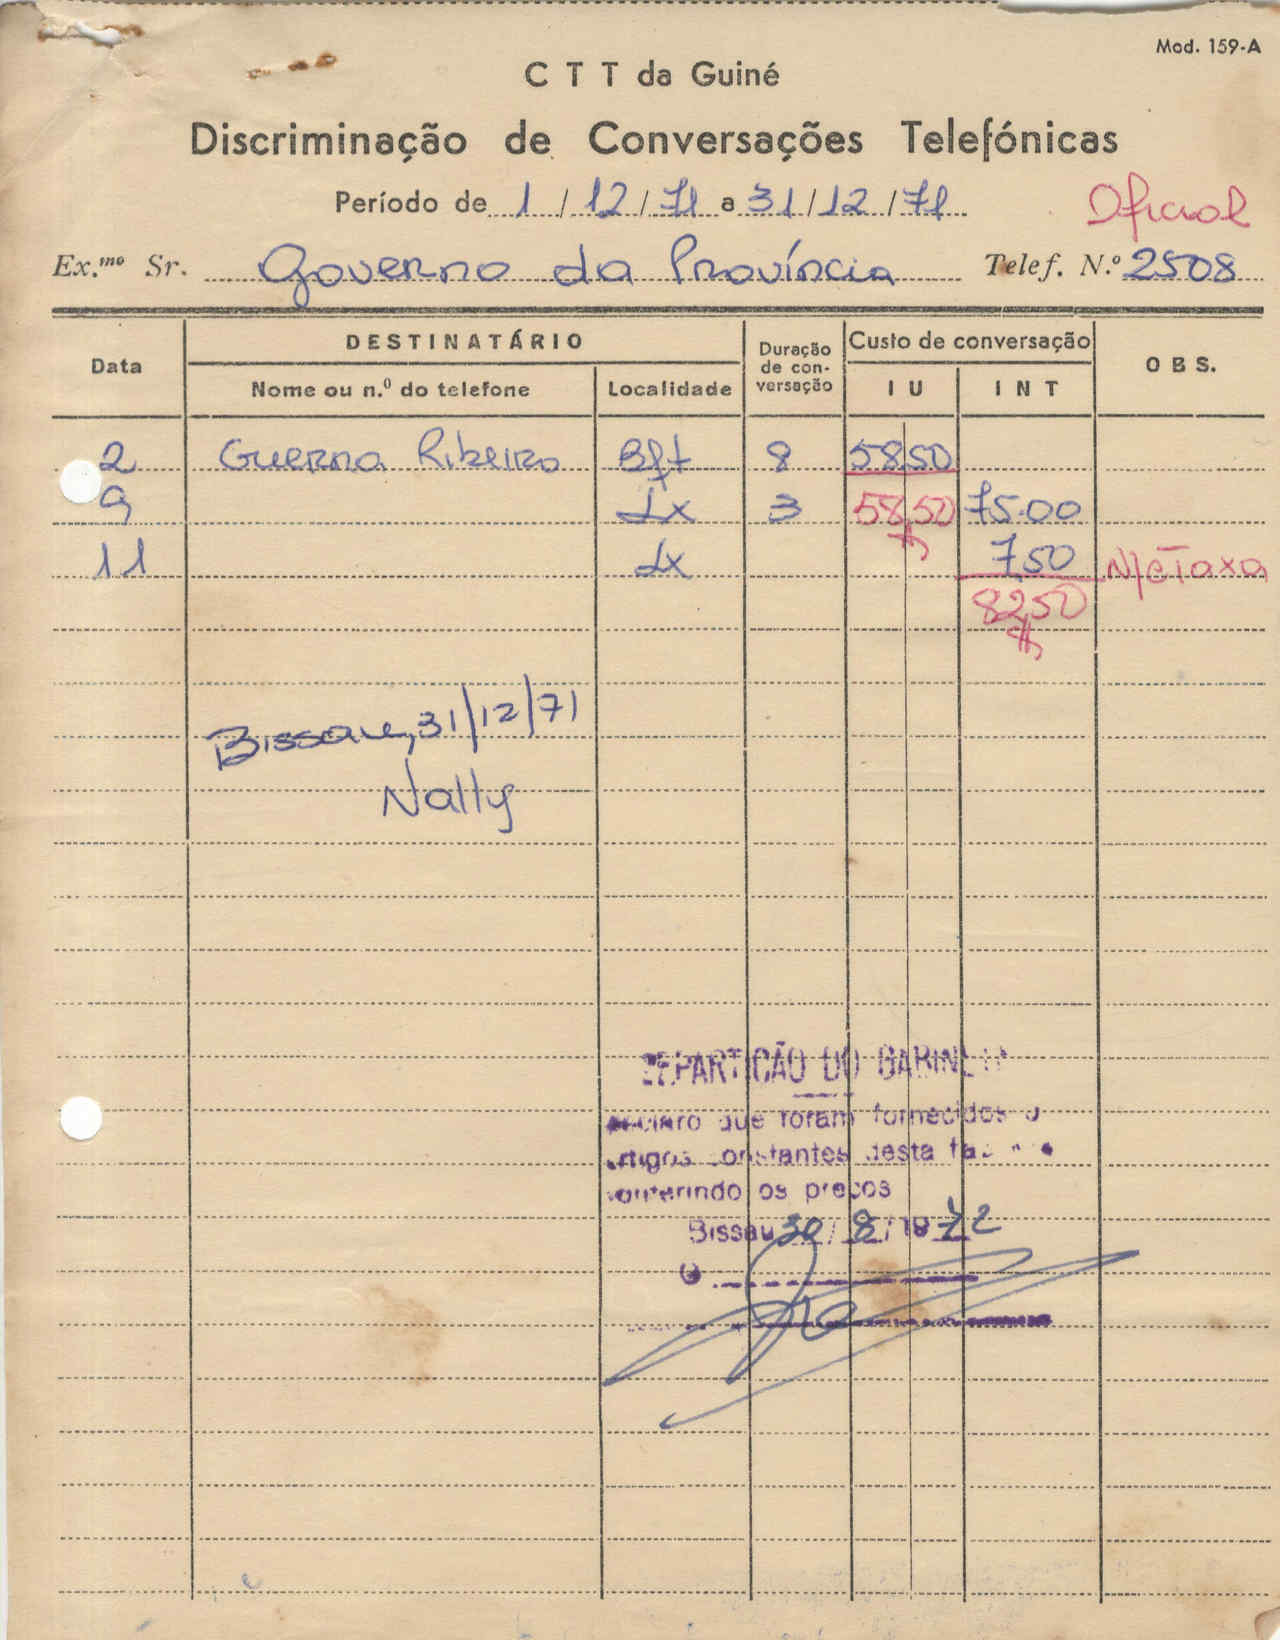 Mod. 159-A
C T T da Guiné
Discriminação de Conversações Telefónicas
Período de 1/12/71 a 31/12/71
Oficial
Ex.mo Sr. Governo da Província Telef. N.º 2508
Data DESTINATÁRIO Duração de conversação Custo de conversação OBS.
Nome ou n.º do telefone Localidade I U I N T
2 Guerra Ribeiro Bft 8 58 50
9 Lx 3 58,50 75.00
11 Lx 7,50 N/c Taxa
82,50
Bissau, 31/12/71
Nally
REPARTIÇÃO DO GABINETE
Declaro que foram fornecidos o
artigos constantes desta
conferindo os preços
Bissau 30/8/1972
O